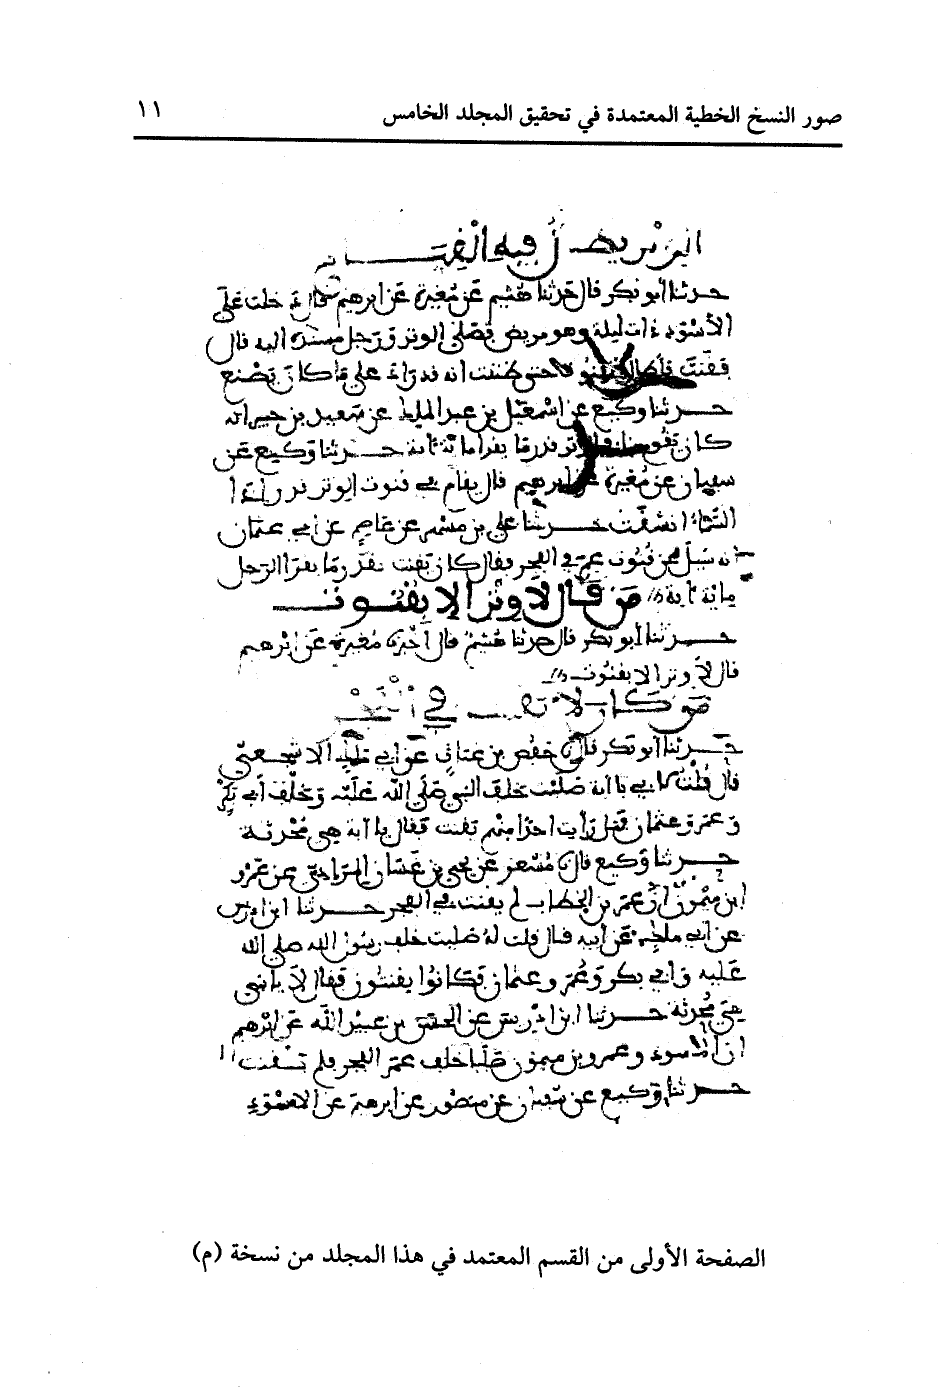 صور النسخ الخطية المعتمدة في تحقيق المجلد الخامس ١١
حدثنا أبو بكر قال حدثنا هشيم عن مغيرة عن ابرهيم قال دخلت على
الأسود ذات ليلة وهو مريض فصلى الوتر ورجل مسنده اليه قال
فقنت فأطال حتى ظننت انه قد زاد على ما كان يصنع
حدثنا وكيع عن اسمعيل بن عبد الملك عن سعيد بن جبير انه
كان يقوم في الوتر قدر ما يقرا مائة آية حدثنا وكيع عن
سفيان عن مغيرة عن ابرهيم قال يقام في قنوت الوتر قدر اذا
السماء انشقت حدثنا علي بن مسهر عن عاصم عن ابي عثمان
انه سئل عن قنوت عمر في الفجر فقال كان يقنت بقدر ما يقرا الرجل
ماية آية
من قال لا وتر الا بقنوت
حدثنا أبو بكر قال حدثنا هشيم قال أخبرنا مغيرة عن ابرهيم
قال لا وتر الا بقنوت
من كان لا يقنت في الفجر
حدثنا أبو بكر قال حفص بن غياث عن أبي مالك الاشجعي
قال قلت لابي يا ابة صليت خلف النبي صلى الله عليه وخلف أبي بكر
وعمر وعثمان فهل رأيت احدا منهم يقنت فقال يا ابة هي محدثة
حدثنا وكيع قال مسعر عن يحيى بن غسان المرادي عن عمرو
ابن ميمون أن عمر بن الخطاب لم يقنت في الفجر حدثنا ابن ادريس
عن أبي ملك عن أبيه قال قلت له صليت خلف رسول الله صلى الله
عليه وأبي بكر وعمر وعثمان فكانوا يقنتون فقال لا يا بني
هي محدثة حدثنا ابن ادريس عن الحسن بن عبيد الله عن ابرهيم
ان الاسود وعمرو بن ميمون صليا خلف عمر الفجر فلم يقنت
حدثنا وكيع عن سفيان عن منصور عن ابرهيم عن الاسود
الصفحة الأولى من القسم المعتمد في هذا المجلد من نسخة (م)